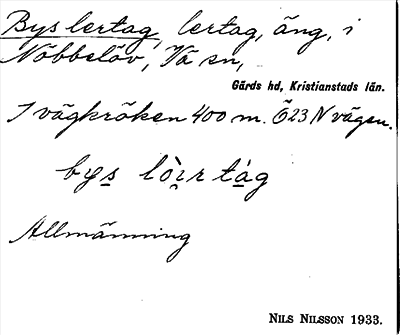 Bys lertag, lertag, äng, i
Nöbbelöv, Vä sn,
Gärds hd, Kristianstads län.
I vägkröken 400 m. Ö 23 N vägen.
bys lòi̯r tág
Allmänning
NILS NILSSON 1933.